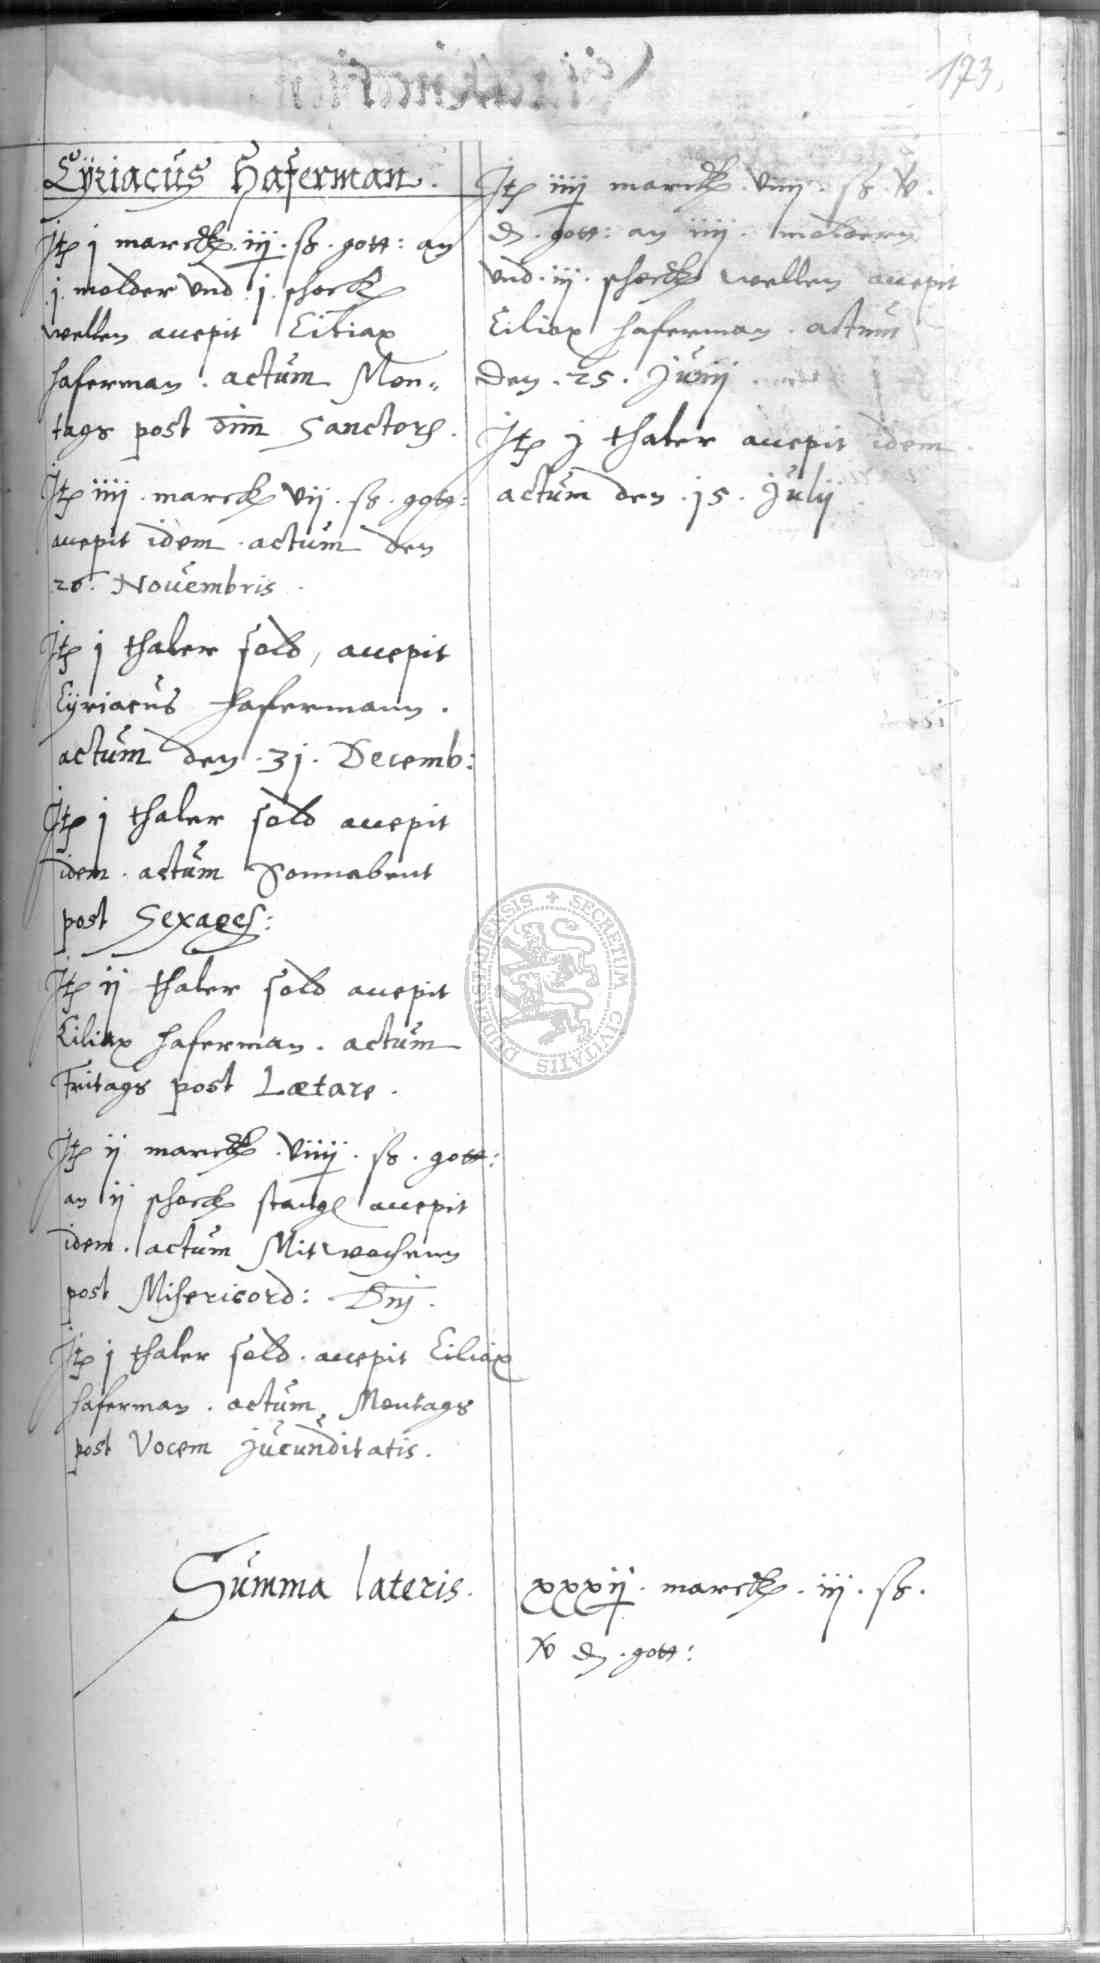 193.
Cÿriacus Haferman.
Itē j marck. iij. ß. gott: an
.j. molder vnd .j. schock
wellen accepit Ciliax
Haferman. actum Mon-
tags post oim̄ Sanctorū.
Itē iiij. marck vij. ß. gott:
accepit idem. actum den
26. Novembris.
Itē j thaler sold, accepit
Cÿriacus Hafermann.
actum den .31. Decemb:
Itē j thaler sold accepit
idem. actum Sonnabent
post Sexages:
Itē ij thaler sold accepit
Ciliax Haferman. actum
Fritags post Lætare.
Itē ij marck. viiij. ß. gott:
an ij schock stangē accepit
idem. actum Mitwochenn
post Misericord: Dnj.
Itē j thaler sold. accepit Ciliax
Haferman. actum Montags
post Vocem jucunditatis.
Itē iiij marck. viiij. ß. v.
d. gott: an iiij. moldern
vnd. iij. schock wellen accepit
Ciliax Haferman. actum
den. 25. Junij.
Itē j thaler accepit idem
actum den .15. Julij
Summa lateris. xxxij. marck. iij. ß.
v d. gott:
SECRETUM CIVITATIS DUDERSTADIENSIS